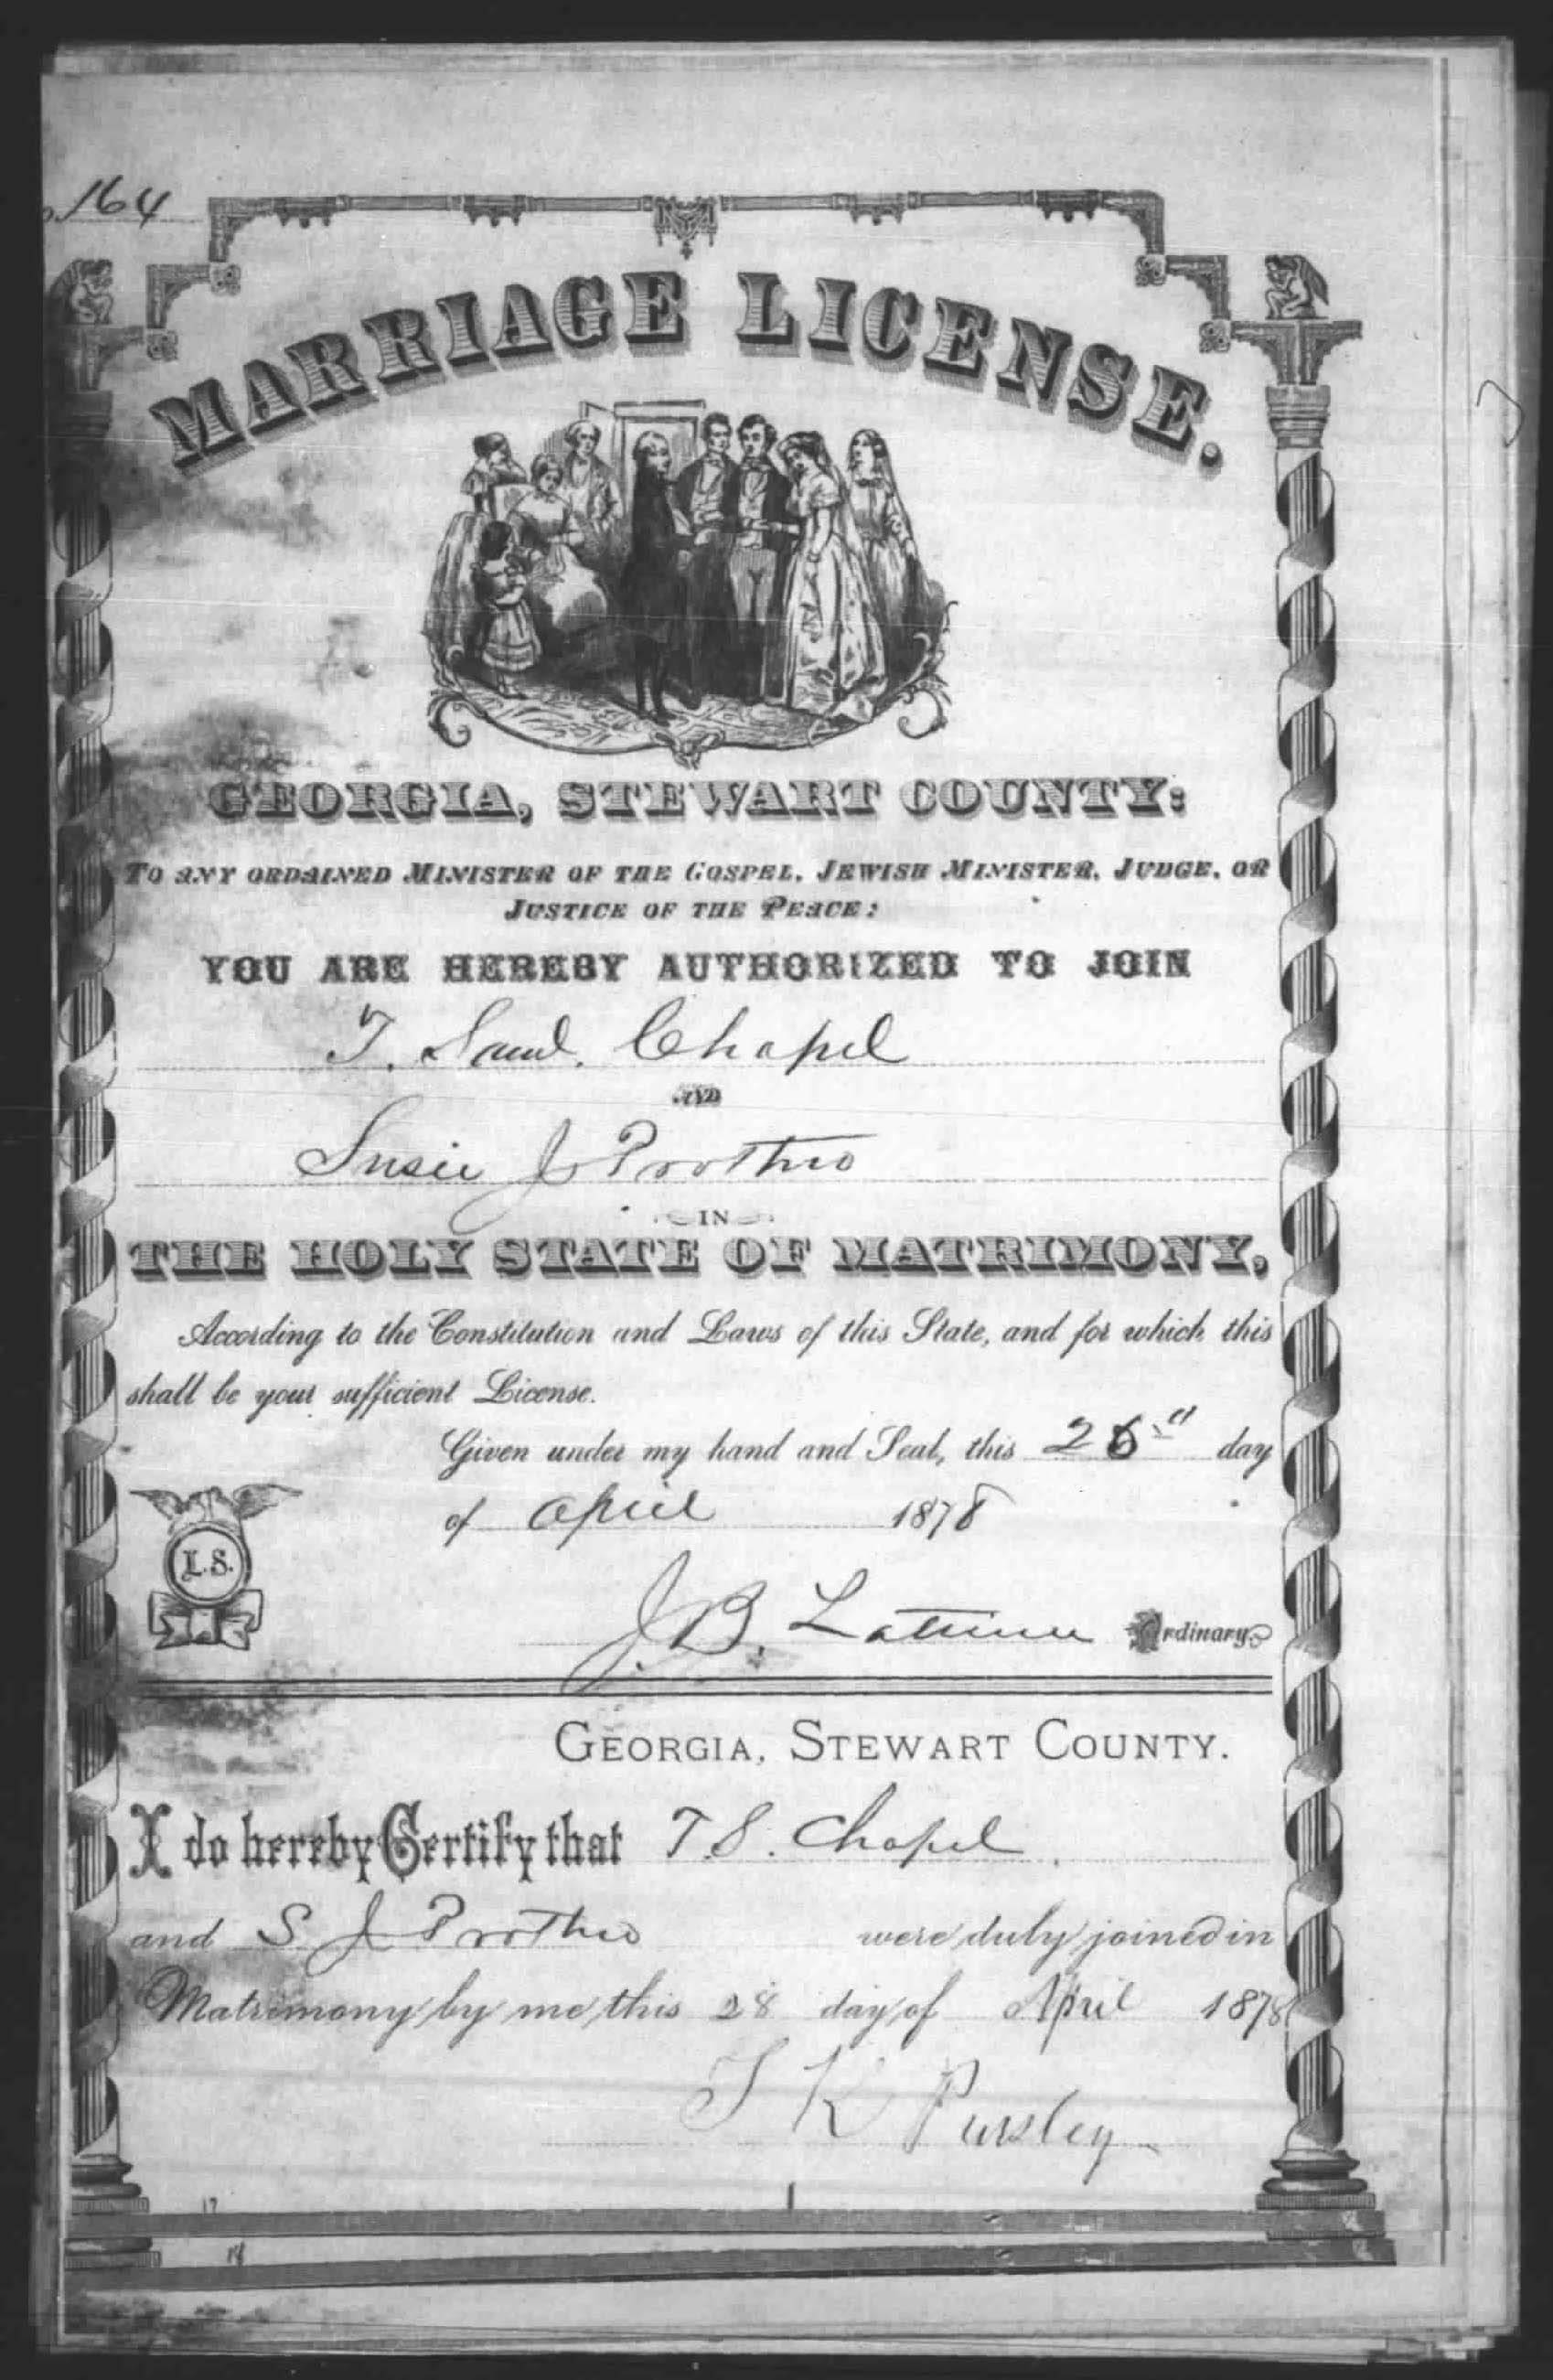 164
MARRIAGE LICENSE.
GEORGIA, STEWART COUNTY:
TO ANY ORDAINED MINISTER OF THE GOSPEL, JEWISH MINISTER, JUDGE, OR
JUSTICE OF THE PEACE:
YOU ARE HEREBY AUTHORIZED TO JOIN
T. Saml. Chapel
AND
Susie J Prothro
IN
THE HOLY STATE OF MATRIMONY,
According to the Constitution and Laws of this State, and for which this
shall be your sufficient License.
Given under my hand and Seal, this 26th day
of April 1878
L.S.
J.B. Latimer Ordinary
GEORGIA, STEWART COUNTY.
I do hereby Certify that T.S. Chapel
and S J Prothro were duly joined in
Matrimony by me this 28 day of April 1878
T K Pursley
17
18